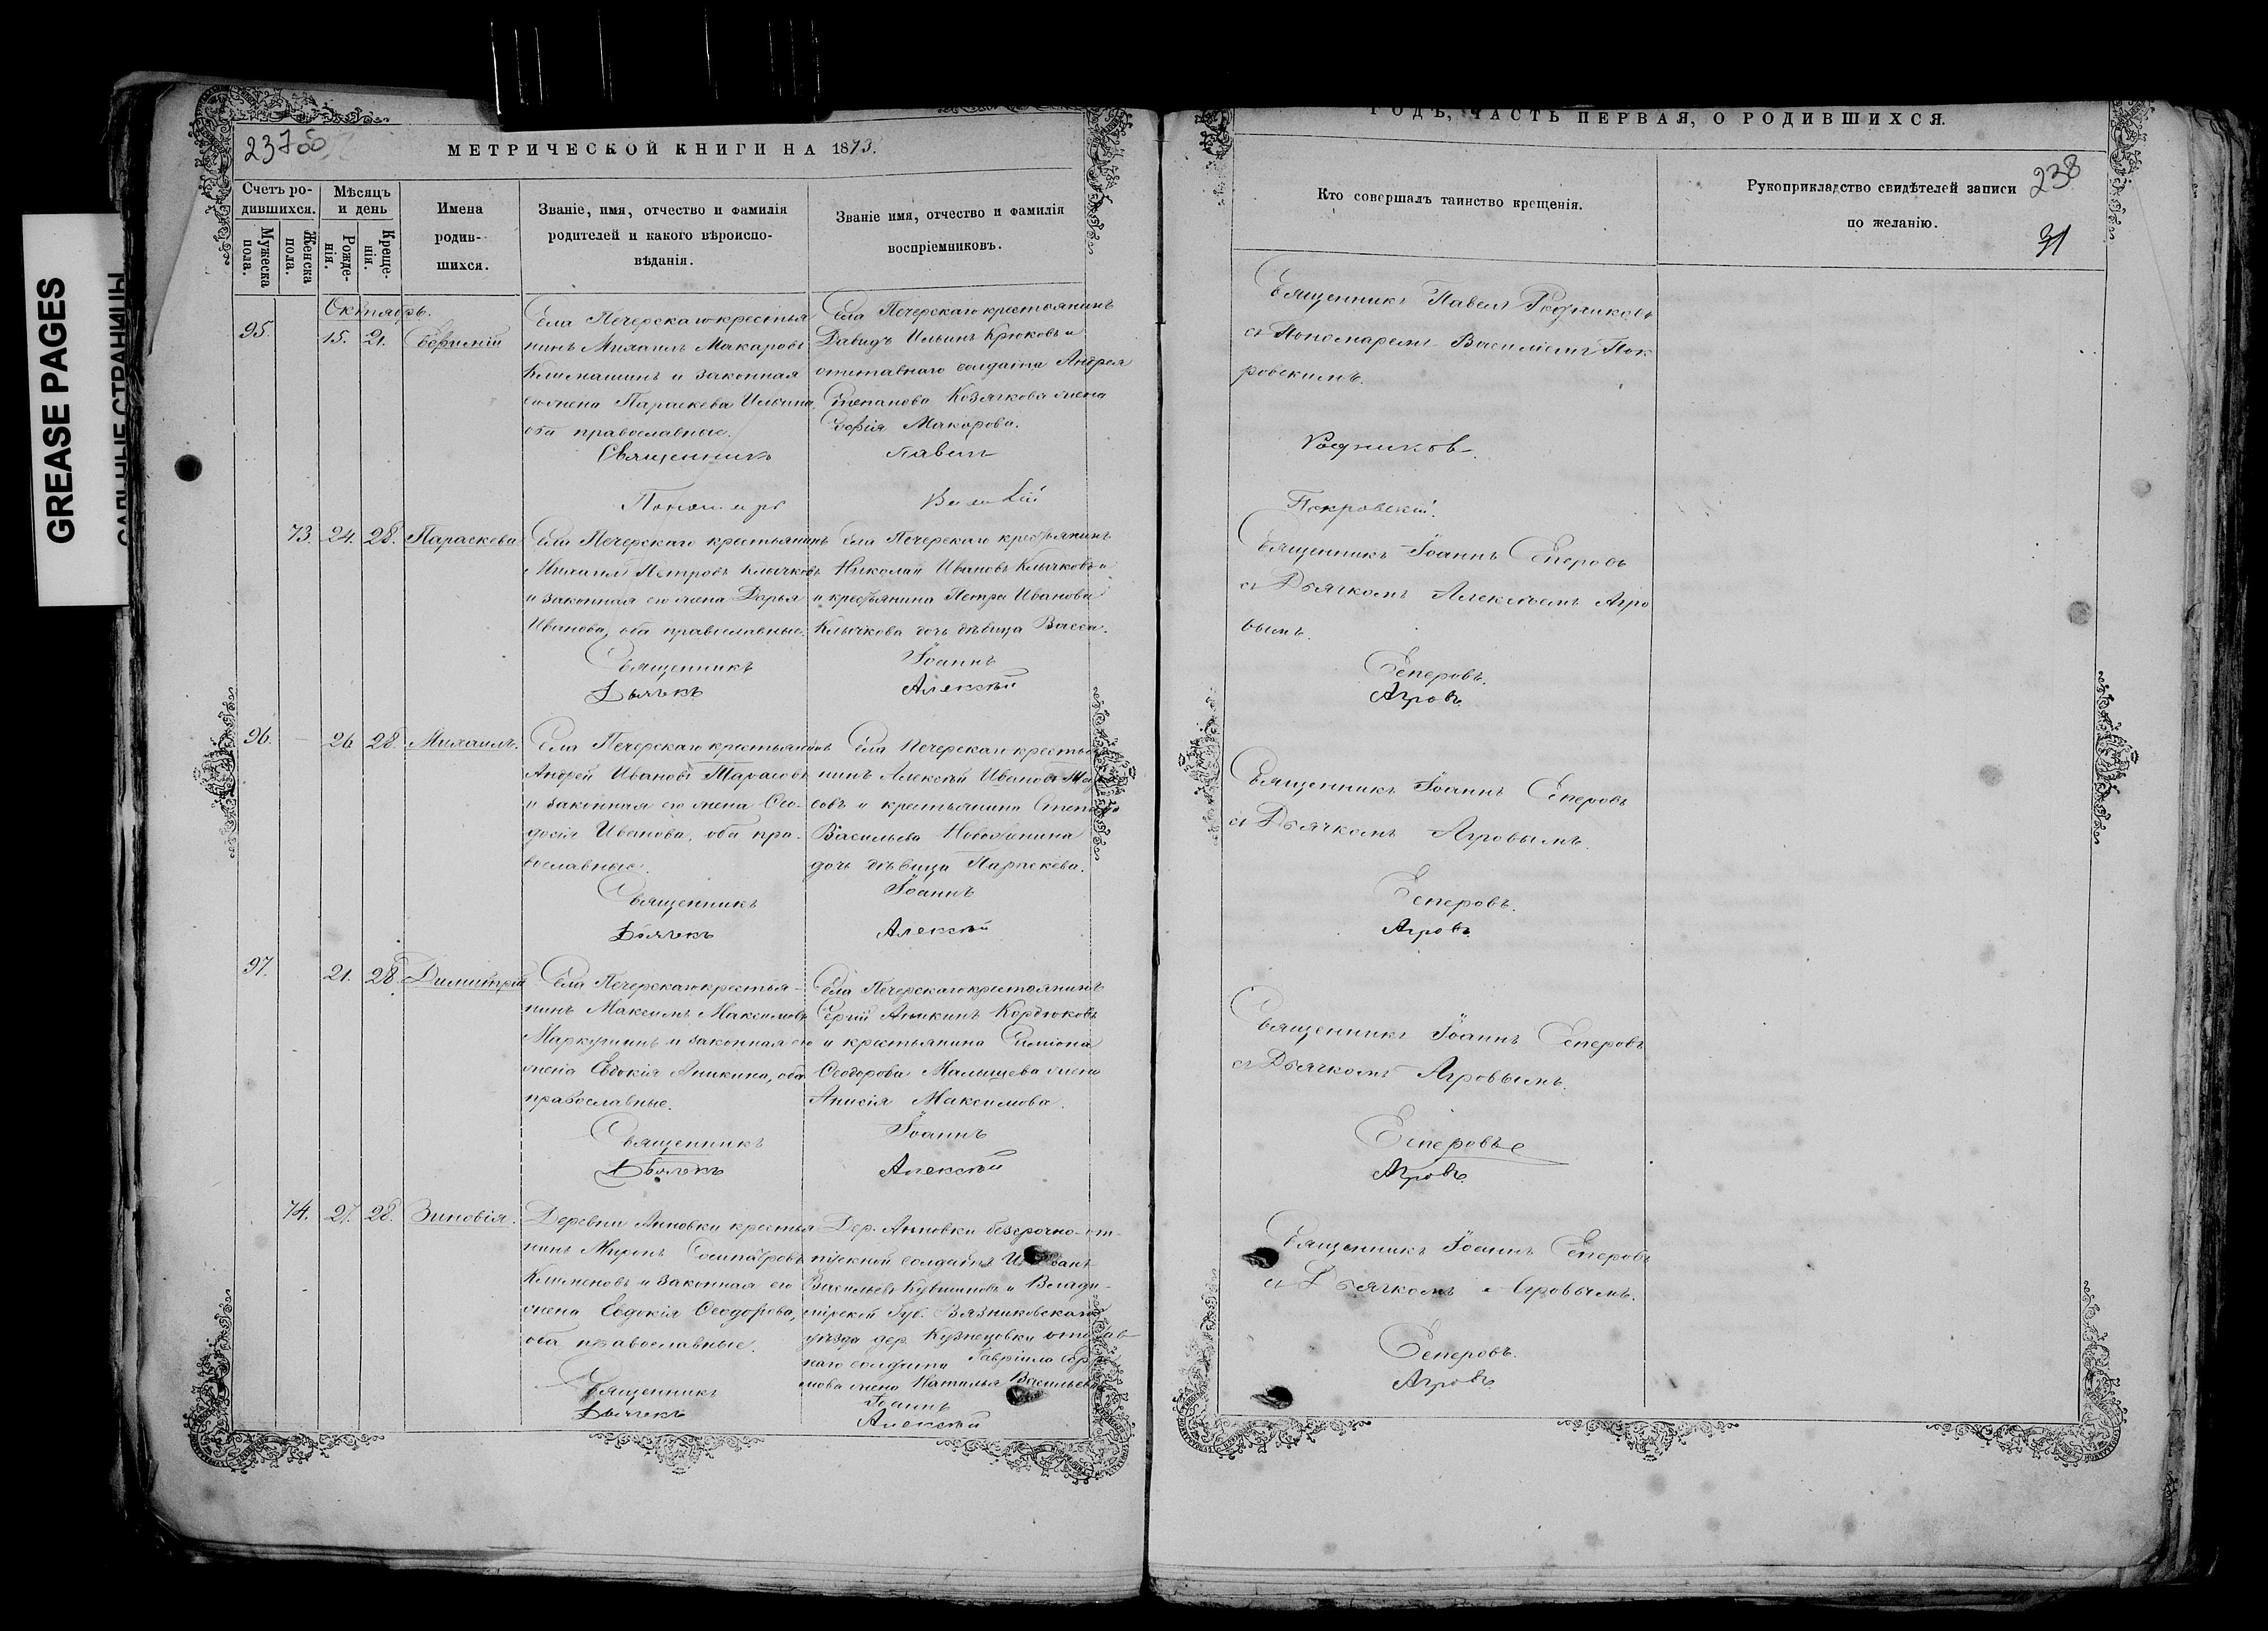 GREASE PAGES
САЛЬНЫЕ СТРАНИЦЫ
237об
МЕТРИЧЕСКОЙ КНИГИ НА 1873.
Счетъ ро-
дившихся.
Мужеска
пола.
Женска
пола.
Мѣсяцъ
и день
Рожде-
нія.
Креще-
нія.
Имена
родив-
шихся.
Званіе, имя, отчество и фамилія
родителей и какого вѣроиспо-
вѣданія.
Званіе имя, отчество и фамилія
воспріемниковъ.
Октябрь.
95. 15. 21.
Села Печерскаго крестья
нинъ Михаилъ Макаровъ
и законная
его жена Параскева Ильина,
оба православные.
Села Печерскаго крестьянинъ
Давидъ Ильинъ Крюковъ и
отставнаго солдата Андрея
Степанова Козлчкова жена
Софія Макарова.
Священникъ Павелъ
Пономарь Василій
73. 24. 28. Параскева
Села Печерскаго крестьянинъ
Михаилъ Петровъ Клычковъ
и законная его жена Дарья
Иванова, оба православные.
Села Печерскаго крестьянинъ
Николай Ивановъ Клычковъ и
и крестьянина Петра Иванова
Клычкова дочь дѣвица Васса.
Священникъ Іоаннъ
Дьячекъ Алексѣй
96. 26 28. Михаилъ.
Села Печерскаго крестьянинъ
Андрей Ивановъ Тарасовъ
и законная его жена Ѳео-
досія Иванова, оба пра-
вославные.
Села Печерскаго крестья
нинъ Алексѣй Ивановъ
и крестьянина Степана
Васильева
дочь дѣвица Параскева.
Священникъ Іоаннъ
Дьячекъ Алексѣй
97. 21. 28. Димитрій
Села Печерскаго крестья-
нинъ Максимъ Максимовъ
Маркушинъ и законная его
жена Евдокія Аникина, оба
православные.
Села Печерскаго крестьянинъ
Сергій Аникинъ Кордюковъ
и крестьянина Симіона
Ѳеодорова Малышева жена
Анисія Максимова.
Священникъ Іоаннъ
Дьячекъ Алексѣй
74. 27. 28. Зиновія.
Деревни Анновки крестья
нинъ Миронъ Сосипатровъ
Клименовъ и законная его
жена Евдокія Ѳеодорова,
оба православные.
Дер. Анновки безсрочно-от-
пускной солдатъ Иванъ
Васильевъ Кувшиновъ и Влади-
мірской губ. Вязниковскаго
уѣзда дер. Кузнецовки отстав-
наго солдата Гавріила
жена Наталья Васильева
Священникъ Іоаннъ
Дьячекъ Алексѣй
ГОДЪ, ЧАСТЬ ПЕРВАЯ, О РОДИВШИХСЯ.
Кто совершалъ таинство крещенія.
Рукоприкладство свидѣтелей записи
по желанію.
238
31
Священникъ Павелъ Родниковъ
съ Пономаремъ Василіемъ Пок
ровскимъ.
Родниковъ.
Покровскій.
Священникъ Іоаннъ Сеперовъ
съ Дьячкомъ Алексѣемъ Агро
вымъ.
Сеперовъ.
Агровъ
Священникъ Іоаннъ Сеперовъ
съ Дьячкомъ Агровымъ.
Сеперовъ.
Агровъ
Священникъ Іоаннъ Сеперовъ
съ Дьячкомъ Агровымъ.
Сеперовъ
Агровъ
Священникъ Іоаннъ Сеперовъ
съ Дьячкомъ Агровымъ.
Сеперовъ.
Агровъ